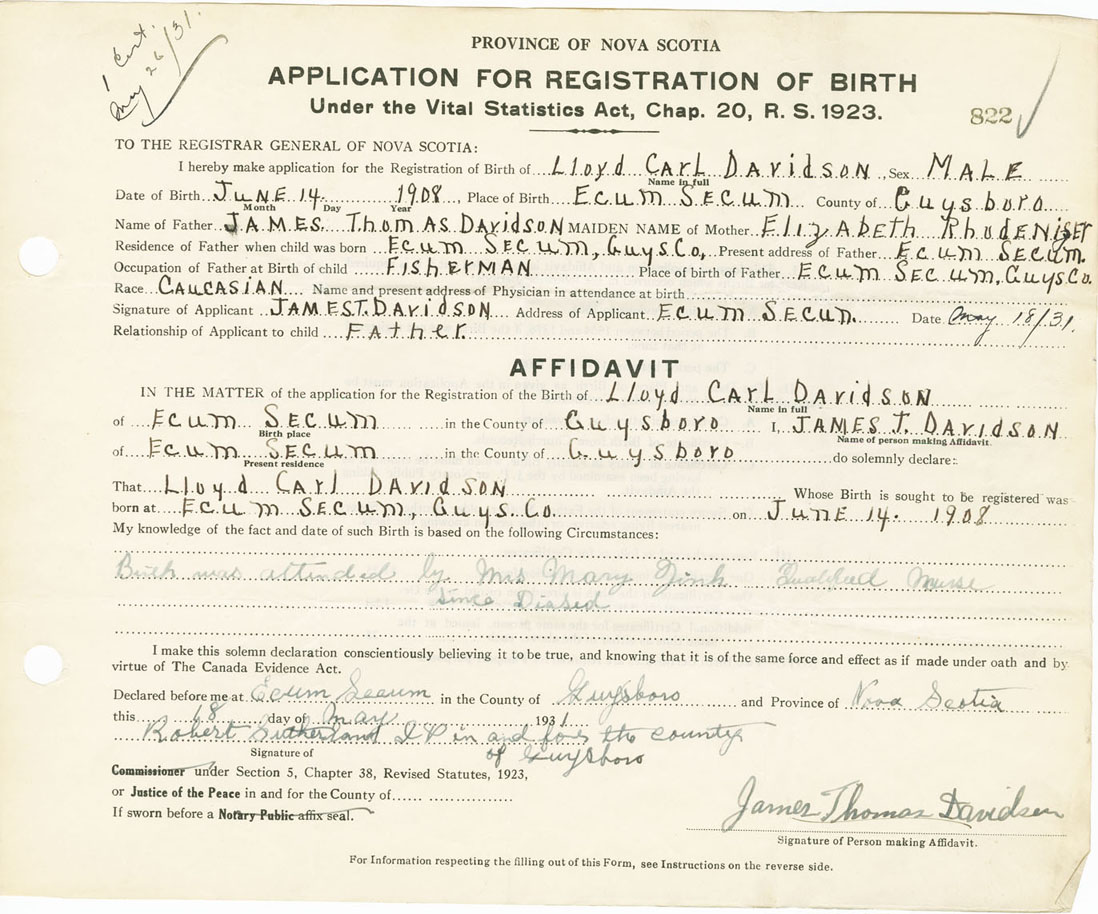 1 Cert.
May 26/31.
PROVINCE OF NOVA SCOTIA
APPLICATION FOR REGISTRATION OF BIRTH
Under the Vital Statistics Act, Chap. 20, R. S. 1923.
822
TO THE REGISTRAR GENERAL OF NOVA SCOTIA:
I hereby make application for the Registration of Birth of Lloyd Carl Davidson, Sex MALE
Name in full
Date of Birth JUNE 14. 1908, Place of Birth Ecum Secum County of Guysboro
Month Day Year
Name of Father JAMES Thomas Davidson MAIDEN NAME of Mother Elizabeth Rhodeniser
Residence of Father when child was born Ecum Secum, Guys Co, Present address of Father Ecum Secum.
Occupation of Father at Birth of child Fisherman Place of birth of Father Ecum Secum, Guys Co.
Race Caucasian Name and present address of Physician in attendance at birth
Signature of Applicant JAMES T. DAVIDSON Address of Applicant Ecum Secum. Date May 18/31.
Relationship of Applicant to child Father.
AFFIDAVIT
IN THE MATTER of the application for the Registration of the Birth of Lloyd Carl Davidson
Name in full
of Ecum Secum in the County of Guysboro I, JAMES T. DAVIDSON
Birth place Name of person making Affidavit.
of Ecum Secum in the County of Guysboro do solemnly declare:
Present residence
That Lloyd Carl Davidson Whose Birth is sought to be registered was
born at Ecum Secum, Guys. Co. on JUNE 14. 1908
My knowledge of the fact and date of such Birth is based on the following Circumstances:
Birth was attended by Mrs Mary Zink Qualified Nurse
Since Diased
I make this solemn declaration conscientiously believing it to be true, and knowing that it is of the same force and effect as if made under oath and by
virtue of The Canada Evidence Act.
Declared before me at Ecum Secum in the County of Guysboro and Province of Nova Scotia
this 18 day of May 1931
Robert Sutherland J P in and for the county
of Guysboro
Signature of
Commissioner under Section 5, Chapter 38, Revised Statutes, 1923,
or Justice of the Peace in and for the County of
If sworn before a Notary Public affix seal.
James Thomas Davidson
Signature of Person making Affidavit.
For Information respecting the filling out of this Form, see Instructions on the reverse side.